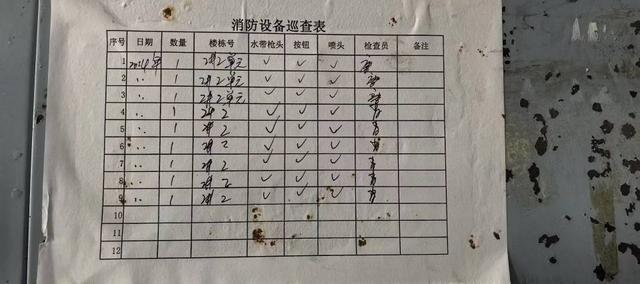 消防设备巡查表
序号 日期 数量 楼栋号 水带枪头 按钮 喷头 检查员 备注
1 1 2#2单元 ✓ ✓ ✓
2 〃 1 2#2单元 ✓ ✓ ✓
3 〃 1 2#2单元 ✓ ✓ ✓
4 〃 1 2#2 ✓ ✓ ✓
5 〃 1 2#2 ✓ ✓ ✓
6 〃 1 2#2 ✓ ✓ ✓
7 〃 1 2#2 ✓ ✓ ✓
8 〃 1 2#2 ✓ ✓ ✓
9 〃 1 2#2 ✓ ✓ ✓
10
11
12